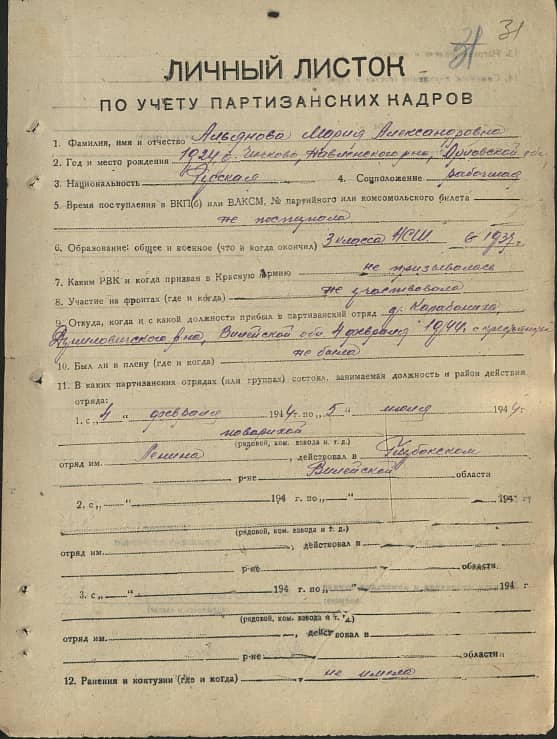 31 31
ЛИЧНЫЙ ЛИСТОК
ПО УЧЕТУ ПАРТИЗАНСКИХ КАДРОВ
1. Фамилия, имя и отчество Альянова Мария Александровна
2. Год и место рождения 1924 г. Навлинского р-на, Орловской обл.
3. Национальность Русская 4. Соцположение рабочая
5. Время поступления в ВКП(б) или ВЛКСМ, № партийного или комсомольского билета
не поступала
6. Образование: общее и военное (что и когда окончил) 3 класса НСШ. в 1937.
7. Каким РВК и когда призван в Красную Армию не призывалась
8. Участие на фронтах (где и когда) не участвовала
9. Откуда, когда и с какой должности прибыл в партизанский отряд др.
р-на, Вилейской обл 4 февраля 1944. с
10. Был ли в плену (где и когда) не была
11. В каких партизанских отрядах (или группах) состоял, занимаемая должность и район действия
отряда:
1. с „4“ февраля 1944 г. по „5“ июля 1944 г.
поварихой
(рядовой, ком. взвода и т. д.)
отряд им. Ленина, действовал в Глубокском
р-не Вилейской области
2. с „ “ 194 г. по „ “ 194 г.
(рядовой, ком. взвода и т. д.)
отряд им. , действовал в
р-не области.
3. с „ “ 194 г. по „ “ 194 г
(рядовой, ком. взвода и т. д.)
отряд им. , действовал в
р-не области
12. Ранения и контузии (где и когда) не имела